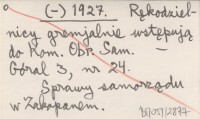 (-) 1927. Rękodziel-
nicy gremjalnie wstępują
do Kom. Obr. Sam. —
Góral 3, nr 24.
Sprawy samorządu
w Zakopanem.
35/051/2877